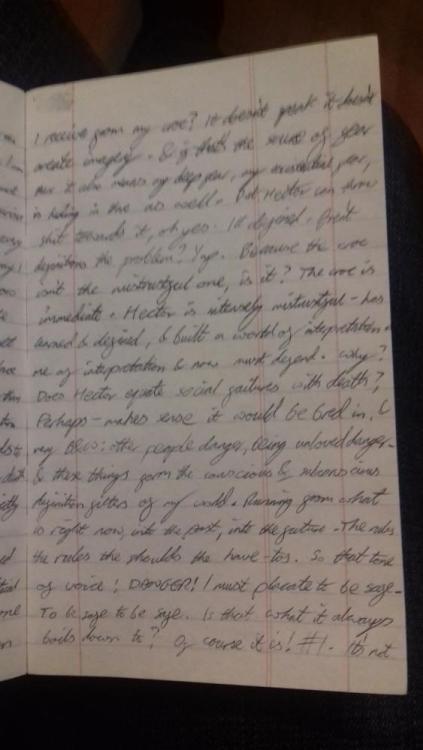 I receive from my croc? It doesn't speak it doesn't
create imagery. & if that's the source of fear
then it also means my deep fear, my existential fear,
is hiding in there as well. But Hector can throw
shit towards it, oh yes. Ill defined.
definitions the problem? Yup. Because the croc
isn't the mistrustful one, is it? The croc is
immediate. Hector is intensely mistrustful - has
learned & defined, & built a world of interpretation.
me of interpretation & now must defend. Why?
Does Hector equate social failures with death?
Perhaps - makes sense it would be bred in. &
my other people danger, being unloved danger -
& these things form the conscious & subconscious
definition filters of my world. Running from what
is right now, into the past, into the future. The rules
the rules the shoulds the have-tos. So that tone
of voice! DANGER! I must placate to be safe -
To be safe to be safe. Is that what it always
boils down to? Of course it is! #1. It's not